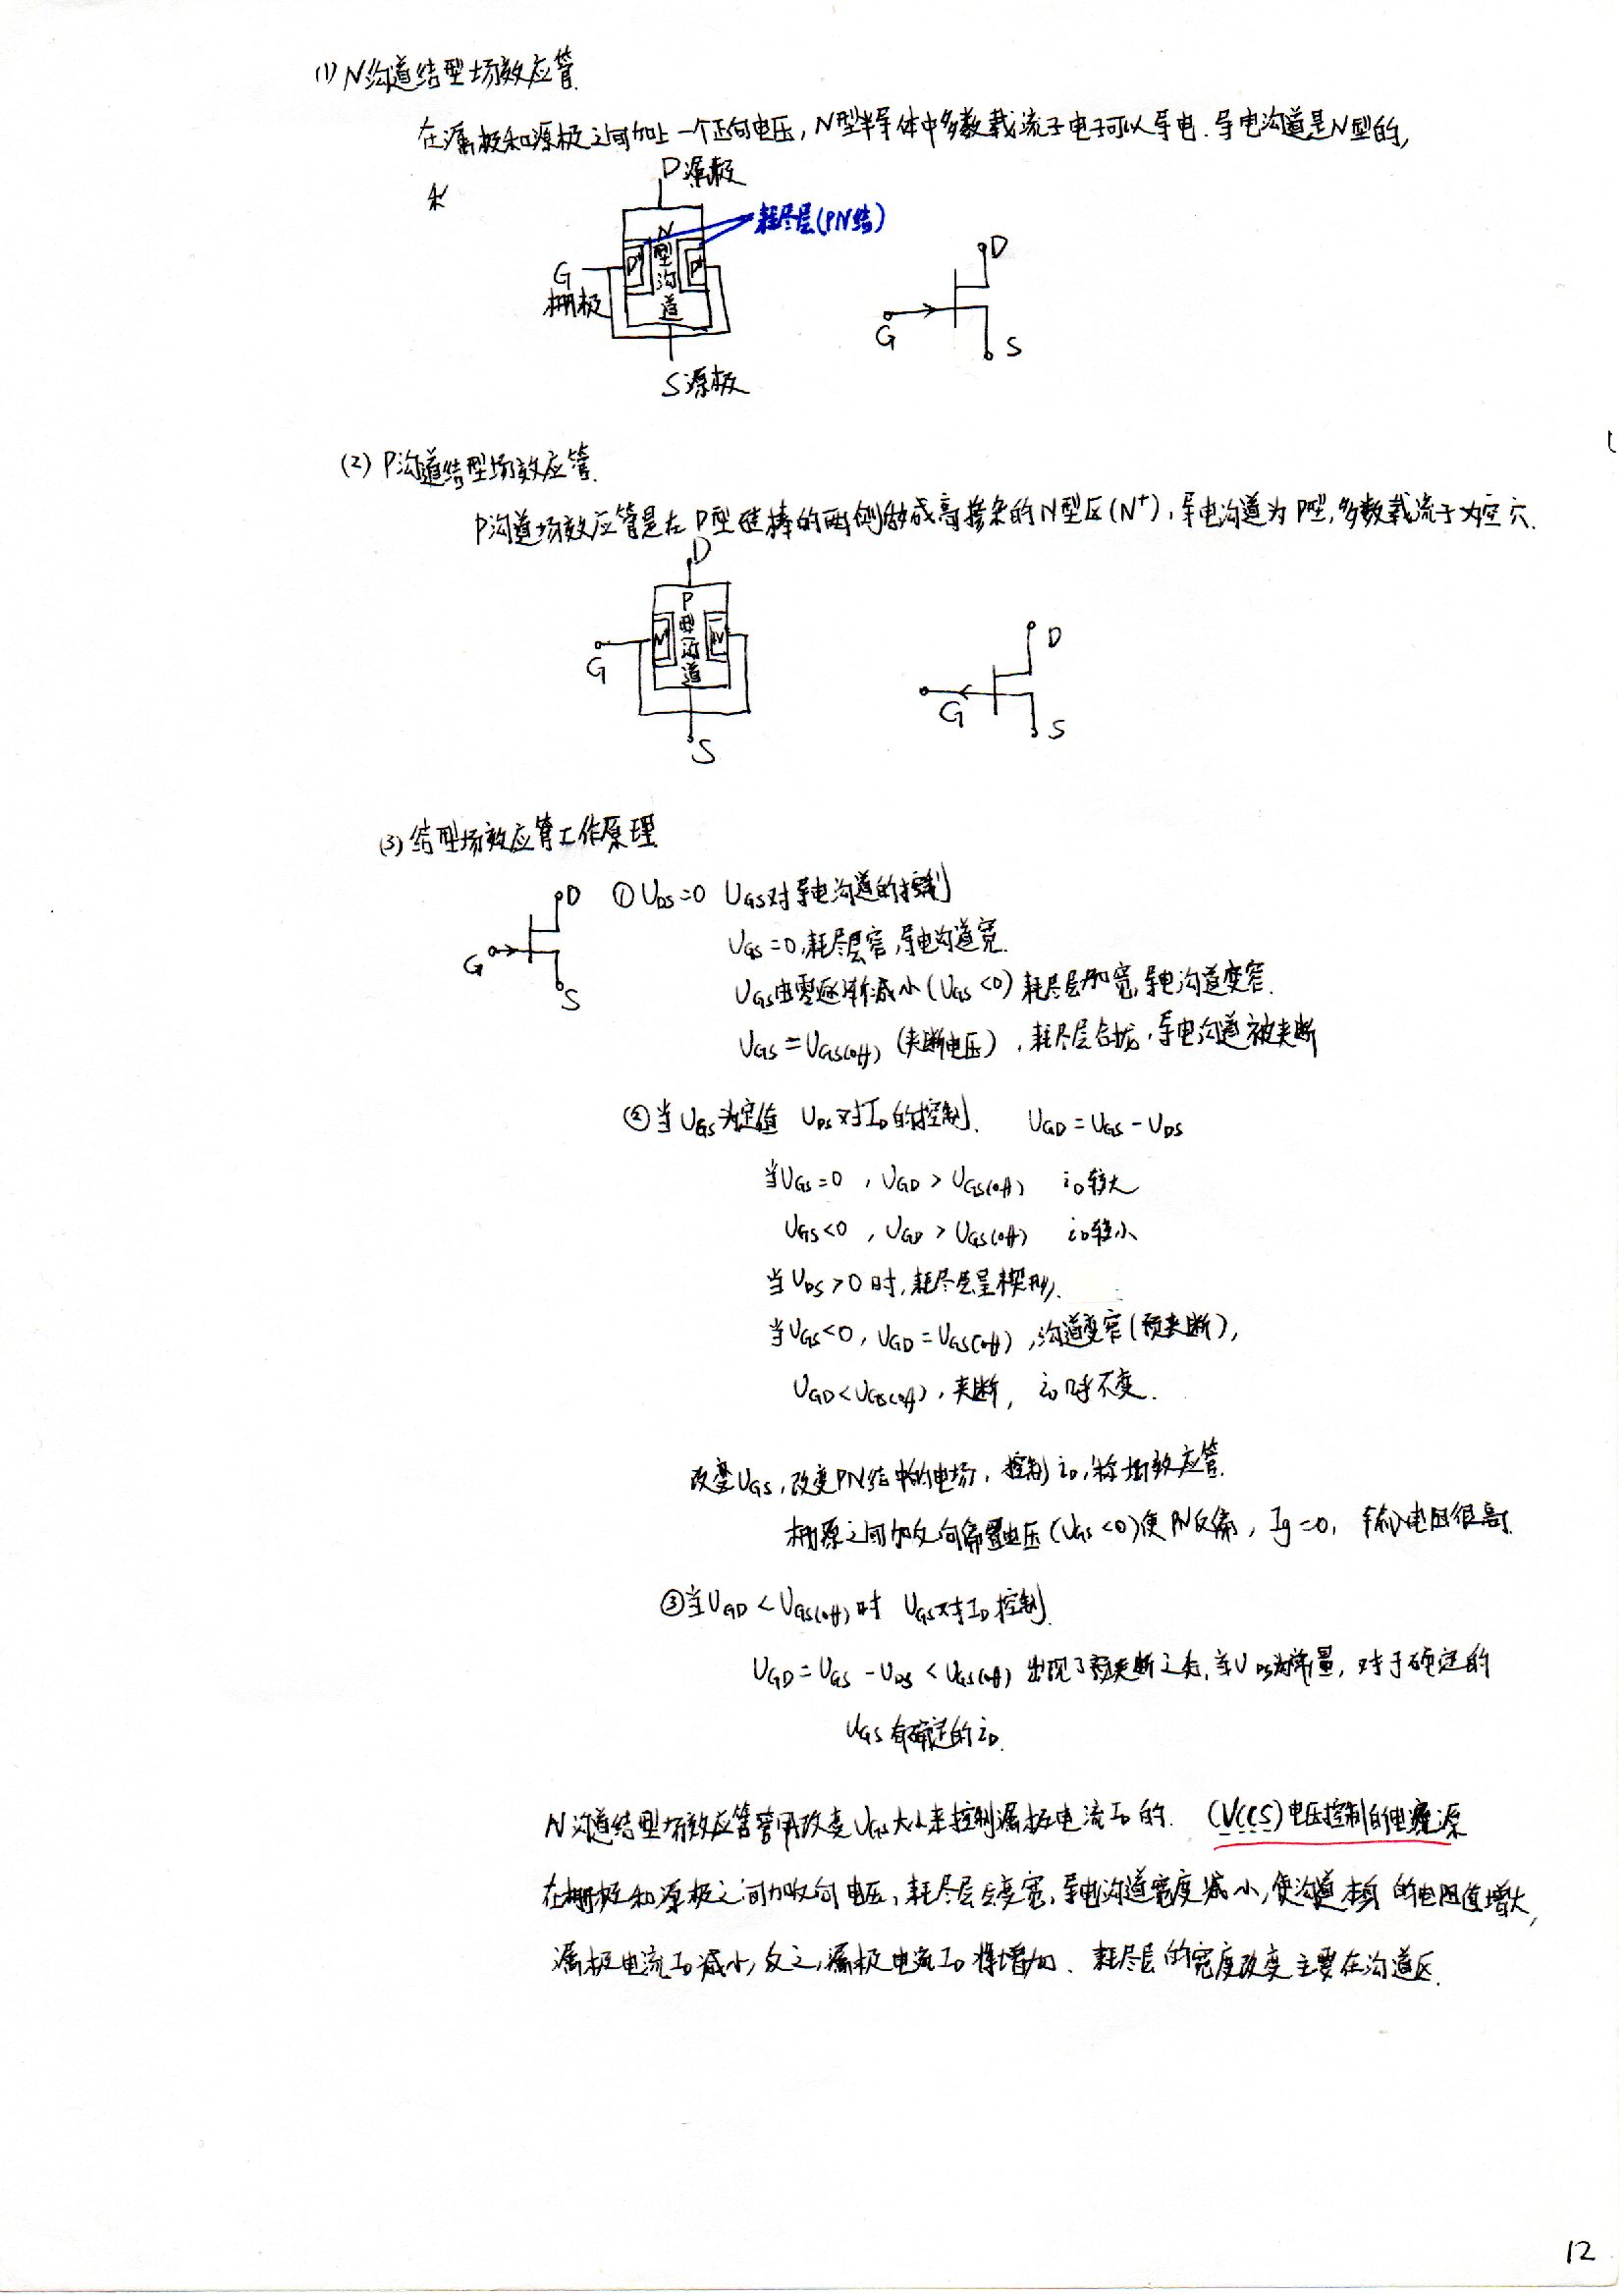 (1) N沟道结型场效应管.
在漏极和源极之间加上一个正向电压, N型半导体中多数载流子电子可以导电. 导电沟道是N型的,
D 漏极
耗尽层(PN结)
N型沟道
P⁺ P⁺
G
栅极
S 源极
D
G
S
(2) P沟道结型场效应管.
P沟道场效应管是在P型硅棒的两侧做成高掺杂的N型区(N⁺), 导电沟道为P型, 多数载流子为空穴.
D
P型沟道
N⁺ N⁺
G
S
D
G
S
(3) 结型场效应管工作原理
D
G
S
① U_DS=0 U_GS对导电沟道的控制
U_GS=0, 耗尽层窄, 导电沟道宽.
U_GS由零逐渐减小(U_GS<0) 耗尽层加宽, 导电沟道变窄.
U_GS=U_GS(off) (夹断电压), 耗尽层合拢, 导电沟道被夹断
② 当U_GS为定值 U_DS对I_D的控制. U_GD=U_GS-U_DS
当U_GS=0, U_GD>U_GS(off) i_D较大
U_GS<0, U_GD>U_GS(off) i_D较小
当U_DS>0时, 耗尽层呈楔形.
当U_GS<0, U_GD=U_GS(off), 沟道变窄(预夹断),
U_GD<U_GS(off), 夹断, i_D几乎不变.
改变U_GS, 改变PN结中的电场, 控制i_D, 称场效应管.
栅源之间加反向偏置电压(U_GS<0)使PN反偏, Ig=0, 输入电阻很高.
③ 当U_GD<U_GS(off)时 U_GS对I_D控制.
U_GD=U_GS-U_DS<U_GS(off) 出现了预夹断之后, 当U_DS为常量, 对于确定的
U_GS有确定的i_D.
N沟道结型场效应管常用改变U_GS大小来控制漏极电流I_D的. (VCCS)电压控制的电流源
在栅极和源极之间加反向电压, 耗尽层会变宽, 导电沟道宽度减小, 使沟道本身的电阻值增大,
漏极电流I_D减小, 反之, 漏极电流I_D将增加. 耗尽层的宽度改变主要在沟道区.
12